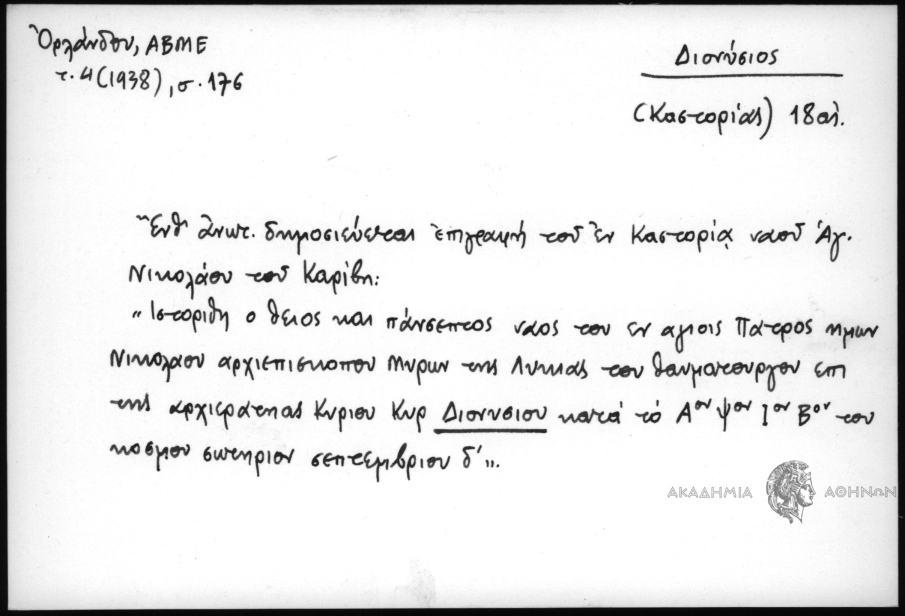 Ὀρλάνδου, ΑΒΜΕ
τ. 4 (1938), σ. 176
Διονύσιος
(Καστορίας) 18 αἰ.
Ἔνθ' ἀνωτ. δημοσιεύεται ἐπιγραφή τοῦ ἐν Καστορίᾳ ναοῦ Ἁγ.
Νικολάου τοῦ Καρίβη:
„Ιστοριθη ο θειος και πάνσεπτος ναος του εν αγιοις Πατρος ημων
Νικολαου αρχιεπισκοπου Μυρων της Λυκιας του θαυματουργου επι
της αρχιερατηας Κυριου Κυρ Διονυσιου κατά τό Α^ον ψ^ον Ι^ον Β^ον του
κοσμου σωτηριον σεπτεμβριου δ'„.
ΑΚΑΔΗΜΙΑ ΑΘΗΝΩΝ